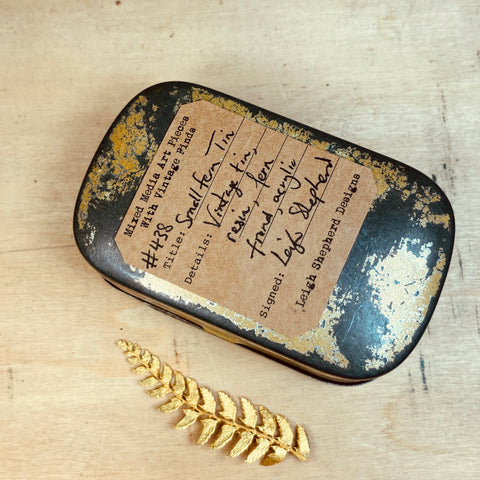 Mixed Media Art Pieces
With Vintage Finds
#438
Title: Small fern Tin
Details: Vintage tin,
resin, fern
and acrylic
Signed: Leigh Shepherd
Leigh Shepherd Designs